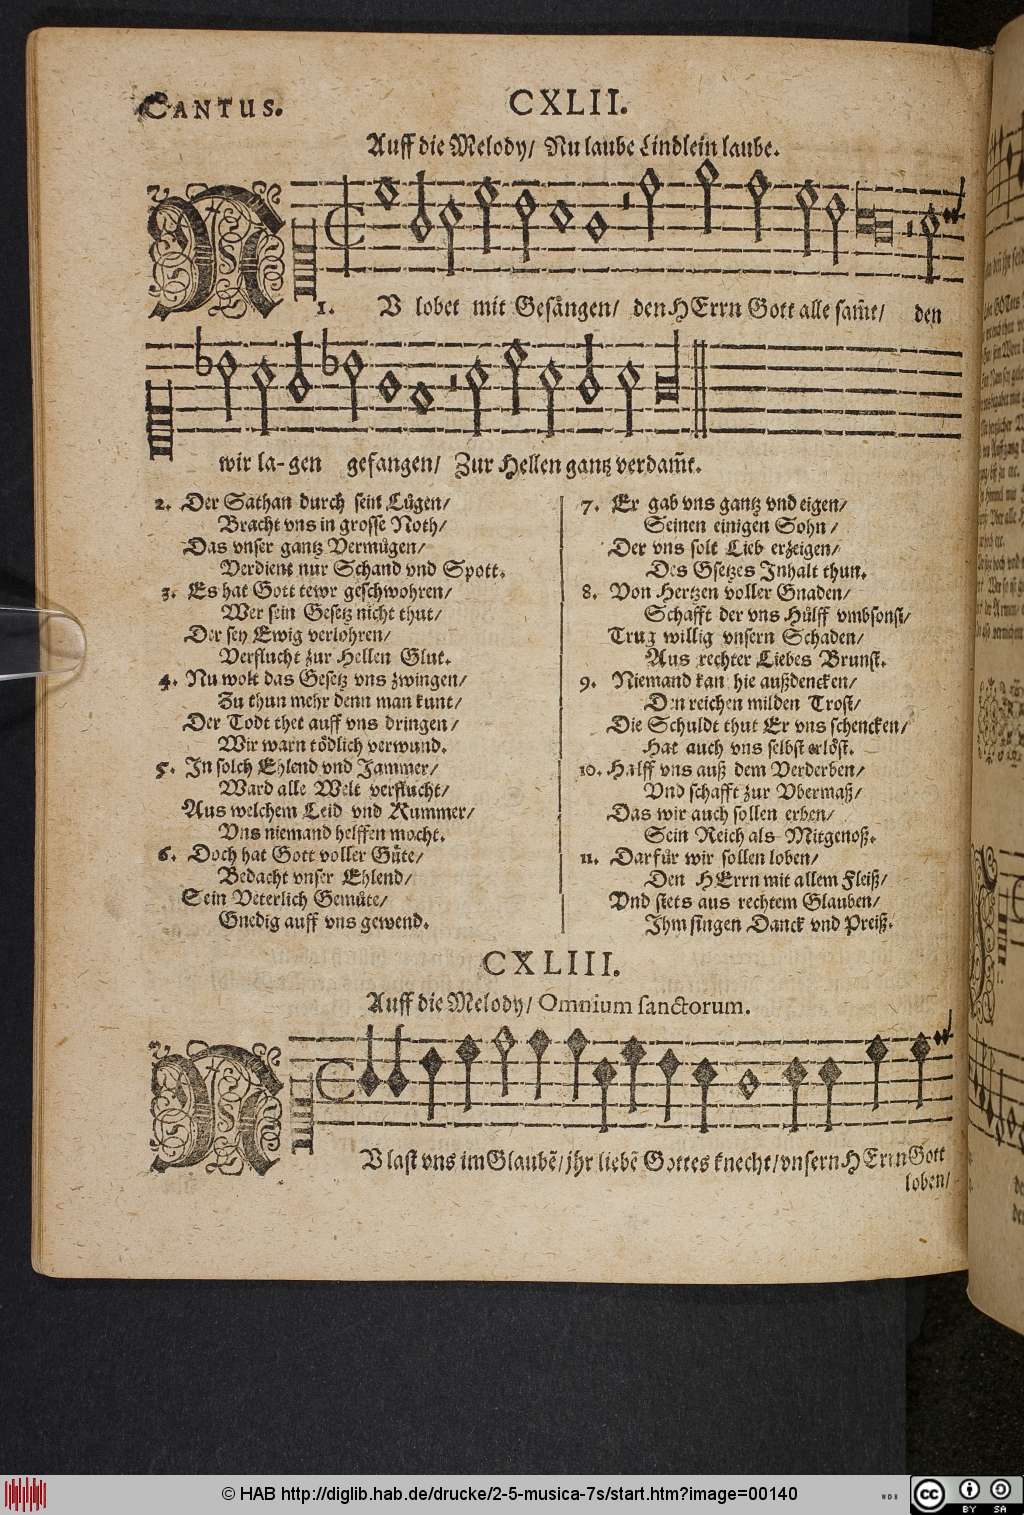 CANTUS.
CXLII.
Auff die Melody/ Nu laube Lindlein laube.
1. NU lobet mit Gesången/ den HErrn Gott alle sam̃t/ den
wir la- gen gefangen/ Zur Hellen gantz verdam̃t.
2. Der Sathan durch sein Lůgen/
Bracht vns in grosse Noth/
Das vnser gantz Vermůgen/
Verdient nur Schand vnd Spott.
3. Es hat Gott tewr geschwohren/
Wer sein Gesetz nicht thut/
Der sey Ewig verlohren/
Verflucht zur Hellen Glut.
4. Nu wolt das Gesetz vns zwingen/
Zu thun mehr denn man kunt/
Der Todt thet auff vns dringen/
Wir warn tödlich verwund.
5. In solch Ehlend vnd Jammer/
Ward alle Welt verflucht/
Aus welchem Leid vnd Kummer/
Vns niemand helffen mocht.
6. Doch hat Gott voller Gůte/
Bedacht vnser Ehlend/
Sein Veterlich Gemůte/
Gnedig auff vns gewend.
7. Er gab vns gantz vnd eigen/
Seinen einigen Sohn/
Der vns solt Lieb erzeigen/
Des Gsetzes Inhalt thun.
8. Von Hertzen voller Gnaden/
Schafft der vns Hůlff vmbsonst/
Trug willig vnsern Schaden/
Aus rechter Liebes Brunst.
9. Niemand kan hie außdencken/
Den reichen milden Trost/
Die Schuldt thut Er vns schencken/
Hat auch vns selbst erlőst.
10. Halff vns auß dem Verderben/
Vnd schafft zur Vbermaß/
Das wir auch sollen erben/
Sein Reich als Mitgenoß.
11. Darfůr wir sollen loben/
Den HErrn mit allem Fleiß/
Vnd stets aus rechtem Glauben/
Ihm singen Danck vnd Preiß.
CXLIII.
Auff die Melody/ Omnium sanctorum.
NU last vns im Glaubẽ/ jhr liebẽ Gottes knecht/ vnsern HErrn Gott
loben/
© HAB http://diglib.hab.de/drucke/2-5-musica-7s/start.htm?image=00140
WDB
CC BY SA